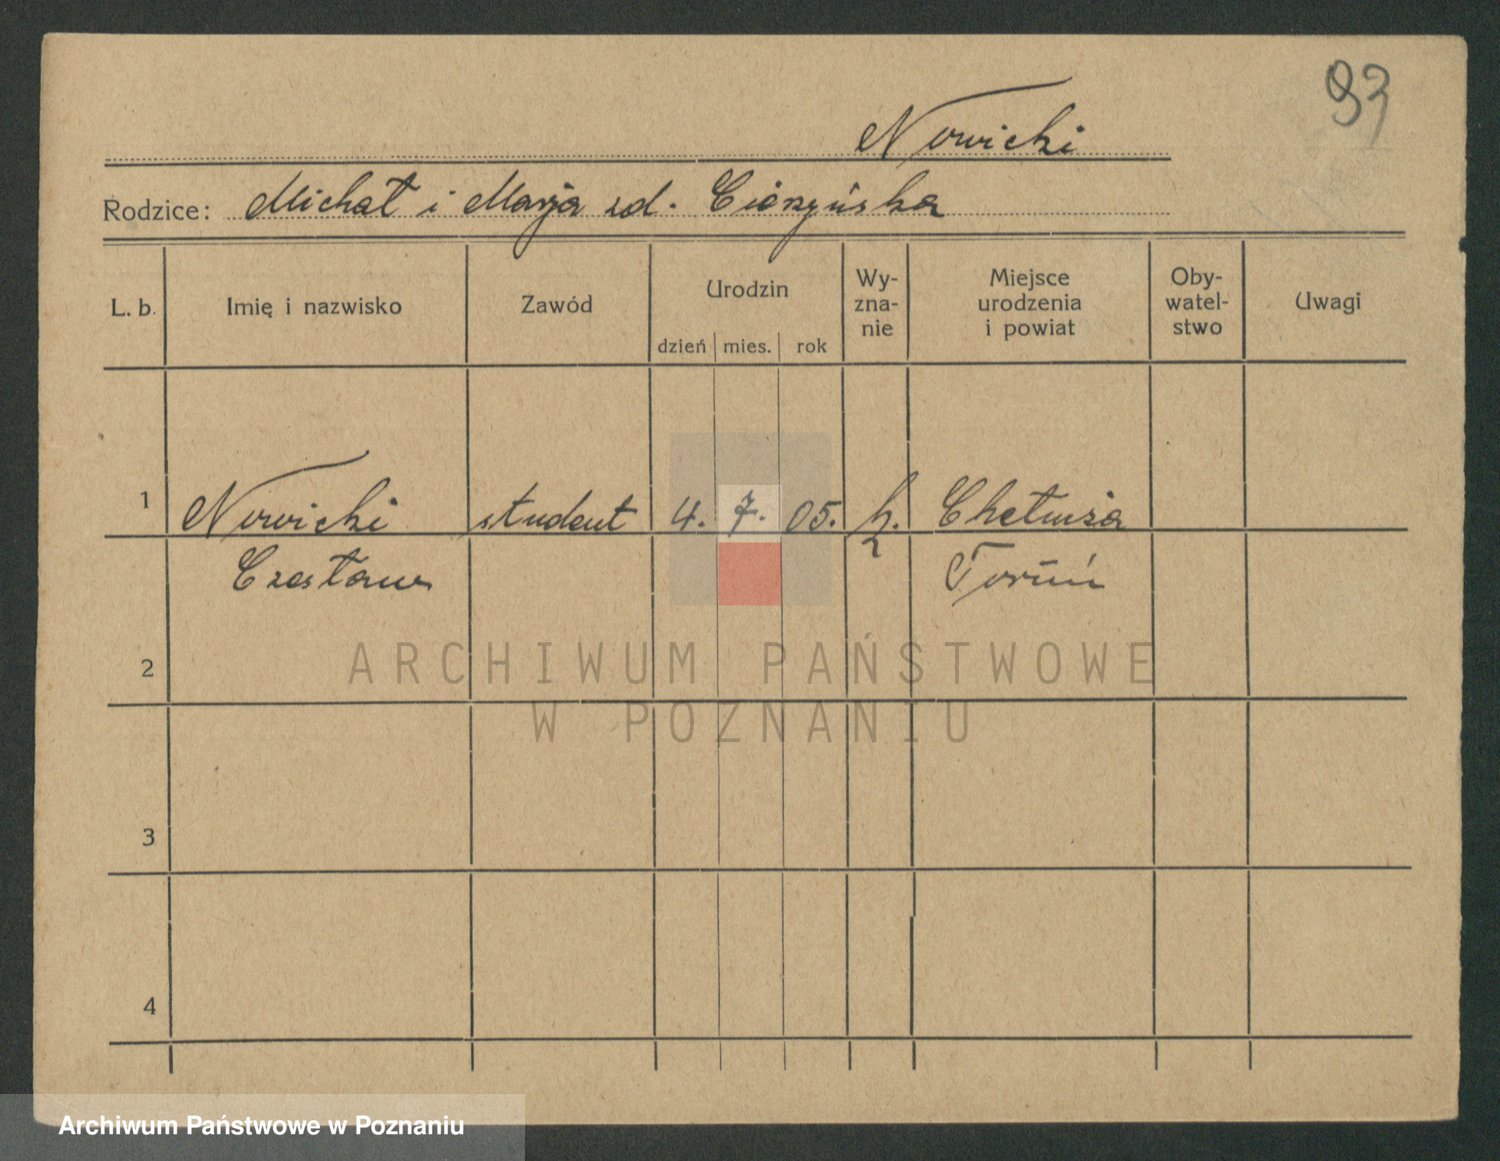 93
Nowicki
Rodzice: Michał i Marja zd. Cieszyńska
L. b. Imię i nazwisko Zawód Urodzin dzień mies. rok Wy-zna-nie Miejsce urodzenia i powiat Oby-watel-stwo Uwagi
1 Nowicki student 4. 7. 05. k. Chełmża
Czesław Toruń
2
ARCHIWUM PAŃSTWOWE
W POZNANIU
3
4
Archiwum Państwowe w Poznaniu